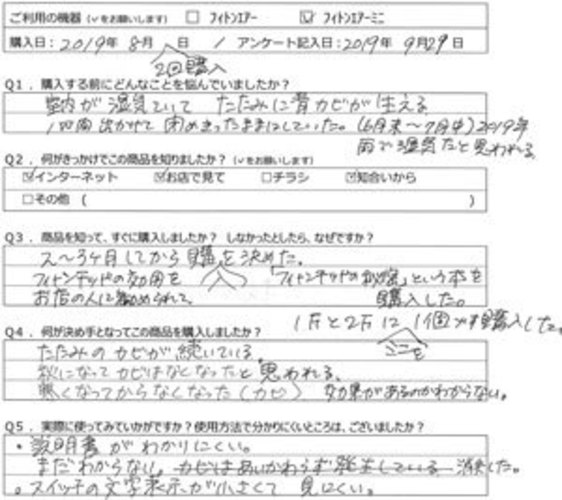 ご利用の機器(✓をお願いします) □ フィトンエアー ☑ フィトンエアーミニ
購入日：2019年 8月 日 / アンケート記入日：2019年 9月29日
2回購入
Q1．購入する前にどんなことを悩んでいましたか？
室内が湿気ていて たたみに青カビが生える
1四間出かけて閉めきったままにしていた。(6月末〜7月中)2019年
雨で湿気たと思われる
Q2．何がきっかけでこの商品を知りましたか？(✓をお願いします)
☑インターネット ☑お店で見て □チラシ ☑知合いから
□その他 ( )
Q3．商品を知って、すぐに購入しましたか？ しなかったとしたら、なぜですか？
2〜3ヶ月してから購入を決めた。
フィトンチッドの効用を 「フィトンチッドの秘密」という本を
お店の人に勧められて、 購入した。
Q4．何が決め手となってこの商品を購入しましたか？
1Fと2Fに 1個ずつ購入した。
ミニを
たたみのカビが続いている。
秋になってカビはなくなったと思われる、
寒くなってからなくなった(カビ) 効果があるのかわからない。
Q5．実際に使ってみていかがですか？使用方法で分かりにくいところは、ございましたか？
・説明書がわかりにくい。
まだわからない。カビはあいかわらず発生している 消えた。
。スイッチの文字表示が小さくて 見にくい。